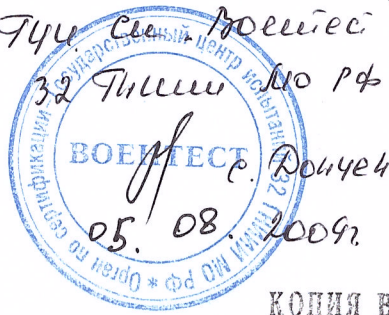 ГЦИ СИ "Воентест"
32 ГНИИИ МО РФ
ВОЕНТЕСТ
С. Дончен
05. 08. 2009г.
Орган по сертификации - Государственный центр испытаний 32 ГНИИИ МО РФ *
КОПИЯ В